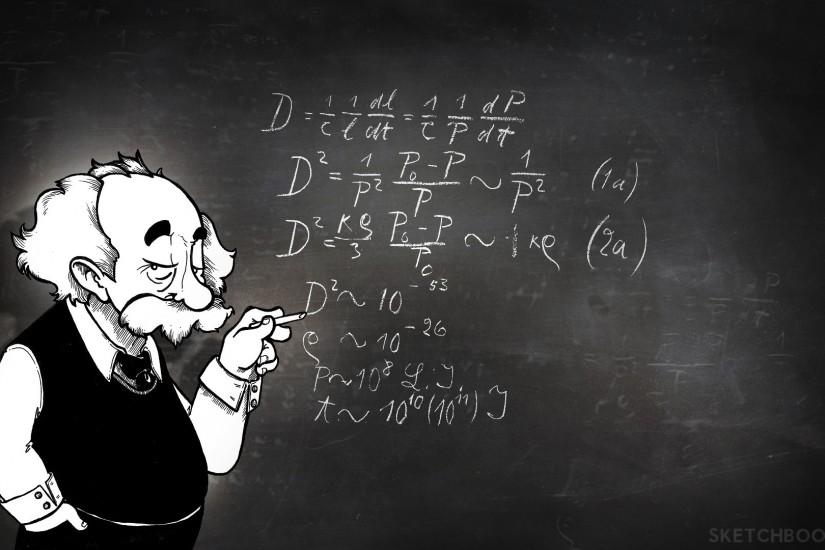 D = 1/c 1/l dl/dt = 1/c 1/P dP/dt
D² = 1/P² P₀-P/P ~ 1/P² (1a)
D² = κρ/3 P₀-P/P₀ ~ κρ (2a)
D² ~ 10⁻⁵³
ρ ~ 10⁻²⁶
P ~ 10⁸ L.J.
t ~ 10¹⁰(10¹¹) J
SKETCHBOO